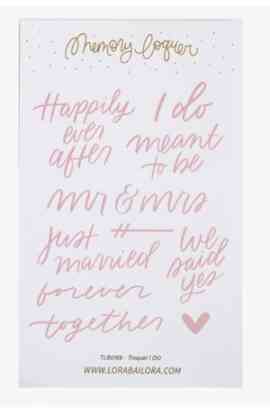 memory loquer
Happily
ever
after
I do
meant
to be
mr & mrs
just
married
#
We
said
yes
forever
together
TLB0169 - Troquel I DO
WWW.LORABAILORA.COM